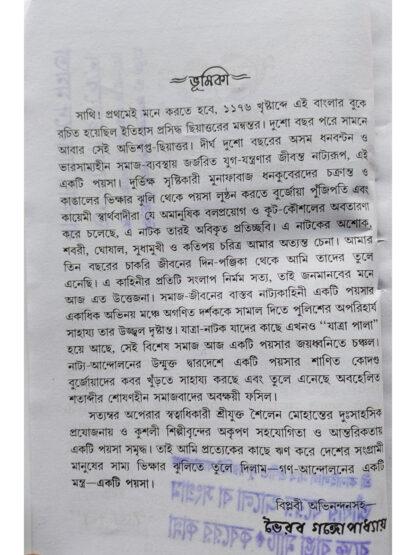 ভূমিকা
সাথি! প্রথমেই মনে করতে হবে, ১১৭৬ খৃষ্টাব্দে এই বাংলার বুকে
রচিত হয়েছিল ইতিহাস প্রসিদ্ধ ছিয়াত্তরের মন্বন্তর। দুশো বছর পরে সামনে
আবার সেই অভিশপ্ত-ছিয়াত্তর। দীর্ঘ দুশো বছরের অসম ধনবন্টন ও
ভারসাম্যহীন সমাজ-ব্যবস্থায় জর্জরিত যুগ-যন্ত্রণার জীবন্ত নাট্যরূপ, এই
একটি পয়সা। দুর্ভিক্ষ সৃষ্টিকারী মুনাফাবাজ ধনকুবেরদের চক্রান্ত ও
কাঙালের ভিক্ষার ঝুলি থেকে পয়সা লুন্ঠন করতে বুর্জোয়া পুঁজিপতি এবং
কায়েমী স্বার্থবাদীরা যে অমানুষিক বলপ্রয়োগ ও কূট-কৌশলের অবতারণা
করে চলেছে, এ নাটক তারই অবিকৃত প্রতিচ্ছবি। এ নাটকের অশোক,
শবরী, ঘোষাল, সুধামুখী ও কতিপয় চরিত্র আমার অত্যন্ত চেনা। আমার
তিন বছরের চাকরি জীবনের দিন-পঞ্জিকা থেকে আমি তাদের তুলে
এনেছি। এ কাহিনীর প্রতিটি সংলাপ নির্মম সত্য, তাই জনমানবের মনে
আজ এত উত্তেজনা। সমাজ-জীবনের বাস্তব নাট্যকাহিনী একটি পয়সার
একাধিক অভিনয় মঞ্চে অগণিত দর্শককে সামাল দিতে পুলিশের অপরিহার্য
সাহায্য তার উজ্জ্বল দৃষ্টান্ত। যাত্রা-নাটক যাদের কাছে এখনও “যাত্রা পালা”
হয়ে আছে, সেই বিশেষ সমাজ আজ একটি পয়সার জয়ধ্বনিতে চঞ্চল।
নাট্য-আন্দোলনের উন্মুক্ত দ্বারদেশে একটি পয়সার শাণিত কোদণ্ড
বুর্জোয়াদের কবর খুঁড়তে সাহায্য করছে এবং তুলে এনেছে অবহেলিত
শতাব্দীর শোষণহীন সমাজবাদের অবক্ষয়ী ফসিল।
সত্যম্বর অপেরার স্বত্বাধিকারী শ্রীযুক্ত শৈলেন মোহান্তের দুঃসাহসিক
প্রযোজনায় ও কুশলী শিল্পীবৃন্দের অকৃপণ সহযোগিতা ও আন্তরিকতায়
একটি পয়সা সমৃদ্ধ। তাই আমি প্রত্যেকের কাছে ঋণ করে দেশের সংগ্রামী
মানুষের সাম্য ভিক্ষার ঝুলিতে তুলে দিলাম—গণ-আন্দোলনের একটি
মন্ত্র—একটি পয়সা।
বিপ্লবী অভিনন্দনসহ—
ভৈরব গঙ্গোপাধ্যায়